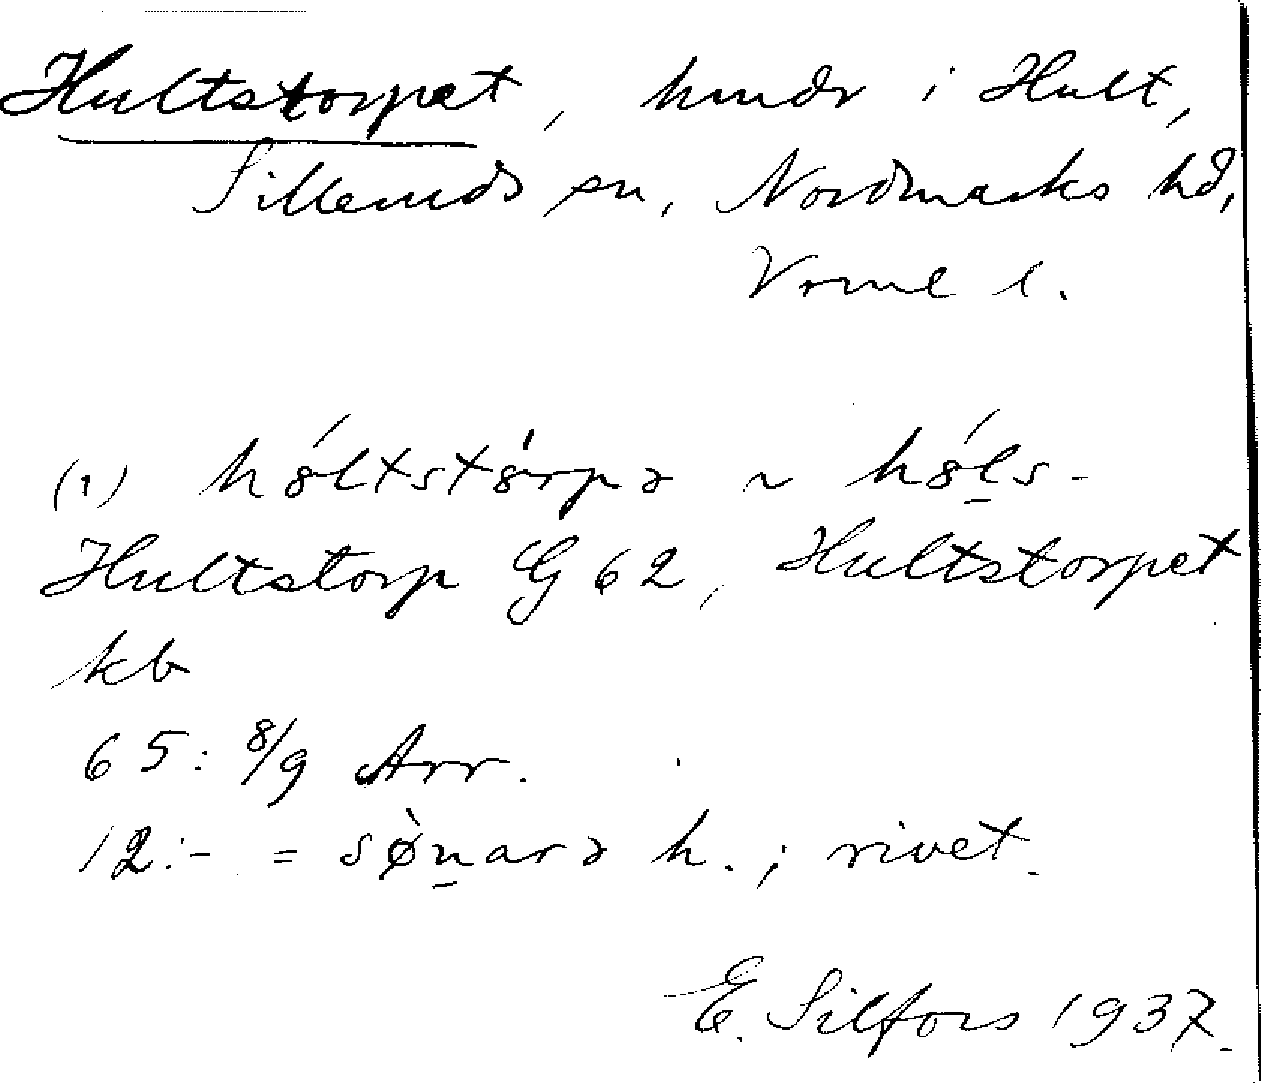 Hultstorpet, hmdr i Hult,
Silleruds sn, Nordmarks hd,
Vrml l.
(1) hóltstórpə ~ hóls-
Hultstorp G 62, Hultstorpet
kb
65: 8/9 Arr.
12:- = sø̀narə h. ; rivet.
E. Silfors 1937.